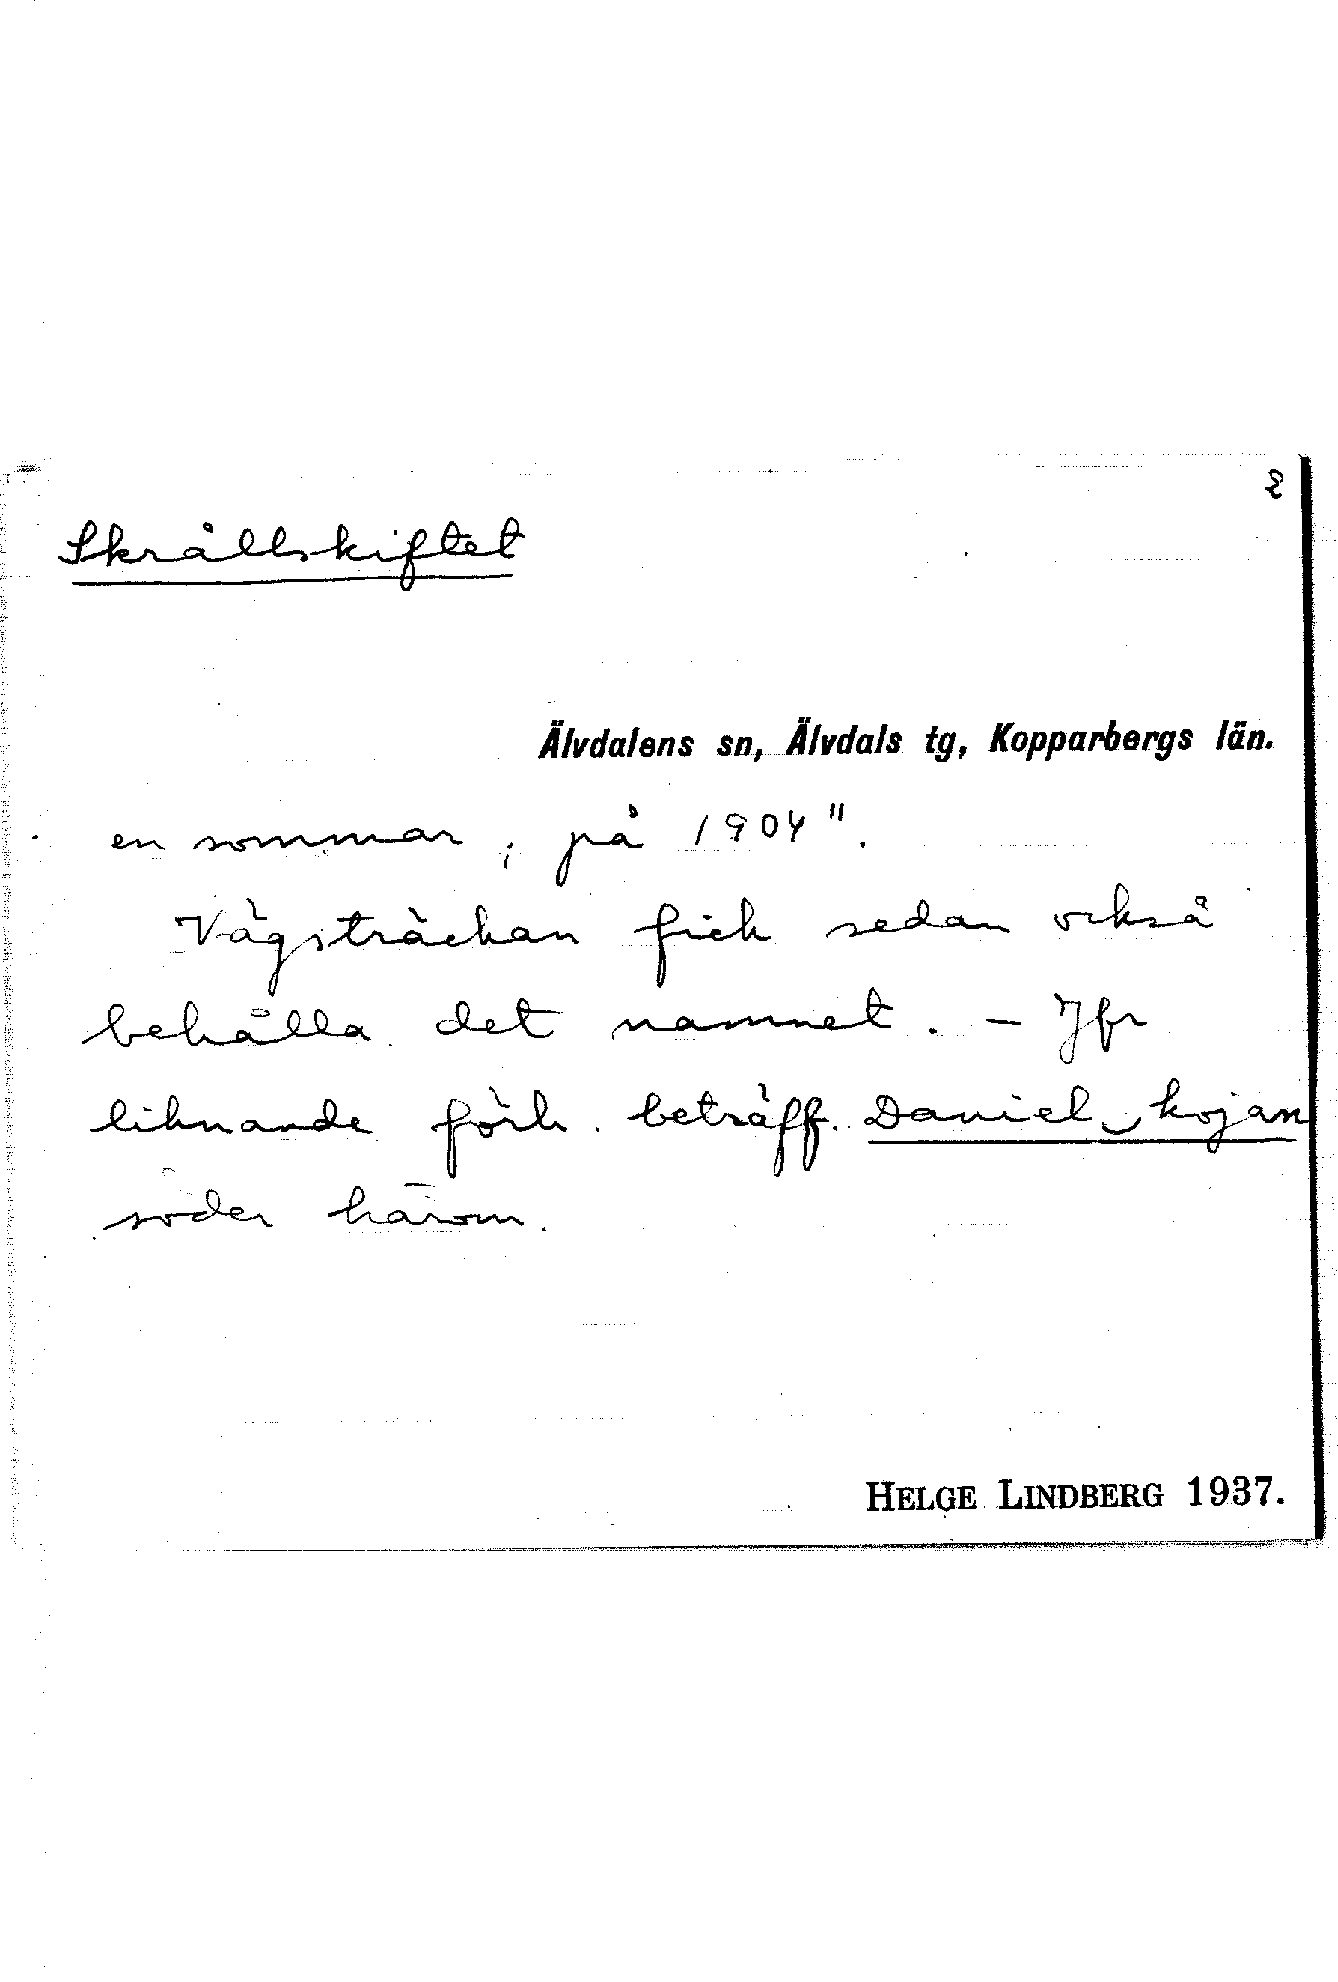 2
Skrållskiftet
Älvdalens sn, Älvdals tg, Kopparbergs län.
en sommar, på 1904".
Vägsträckan fick sedan också
behålla det namnet. - Jfr
liknande förh. beträff. Daniel‿kojan
söder härom.
HELGE LINDBERG 1937.